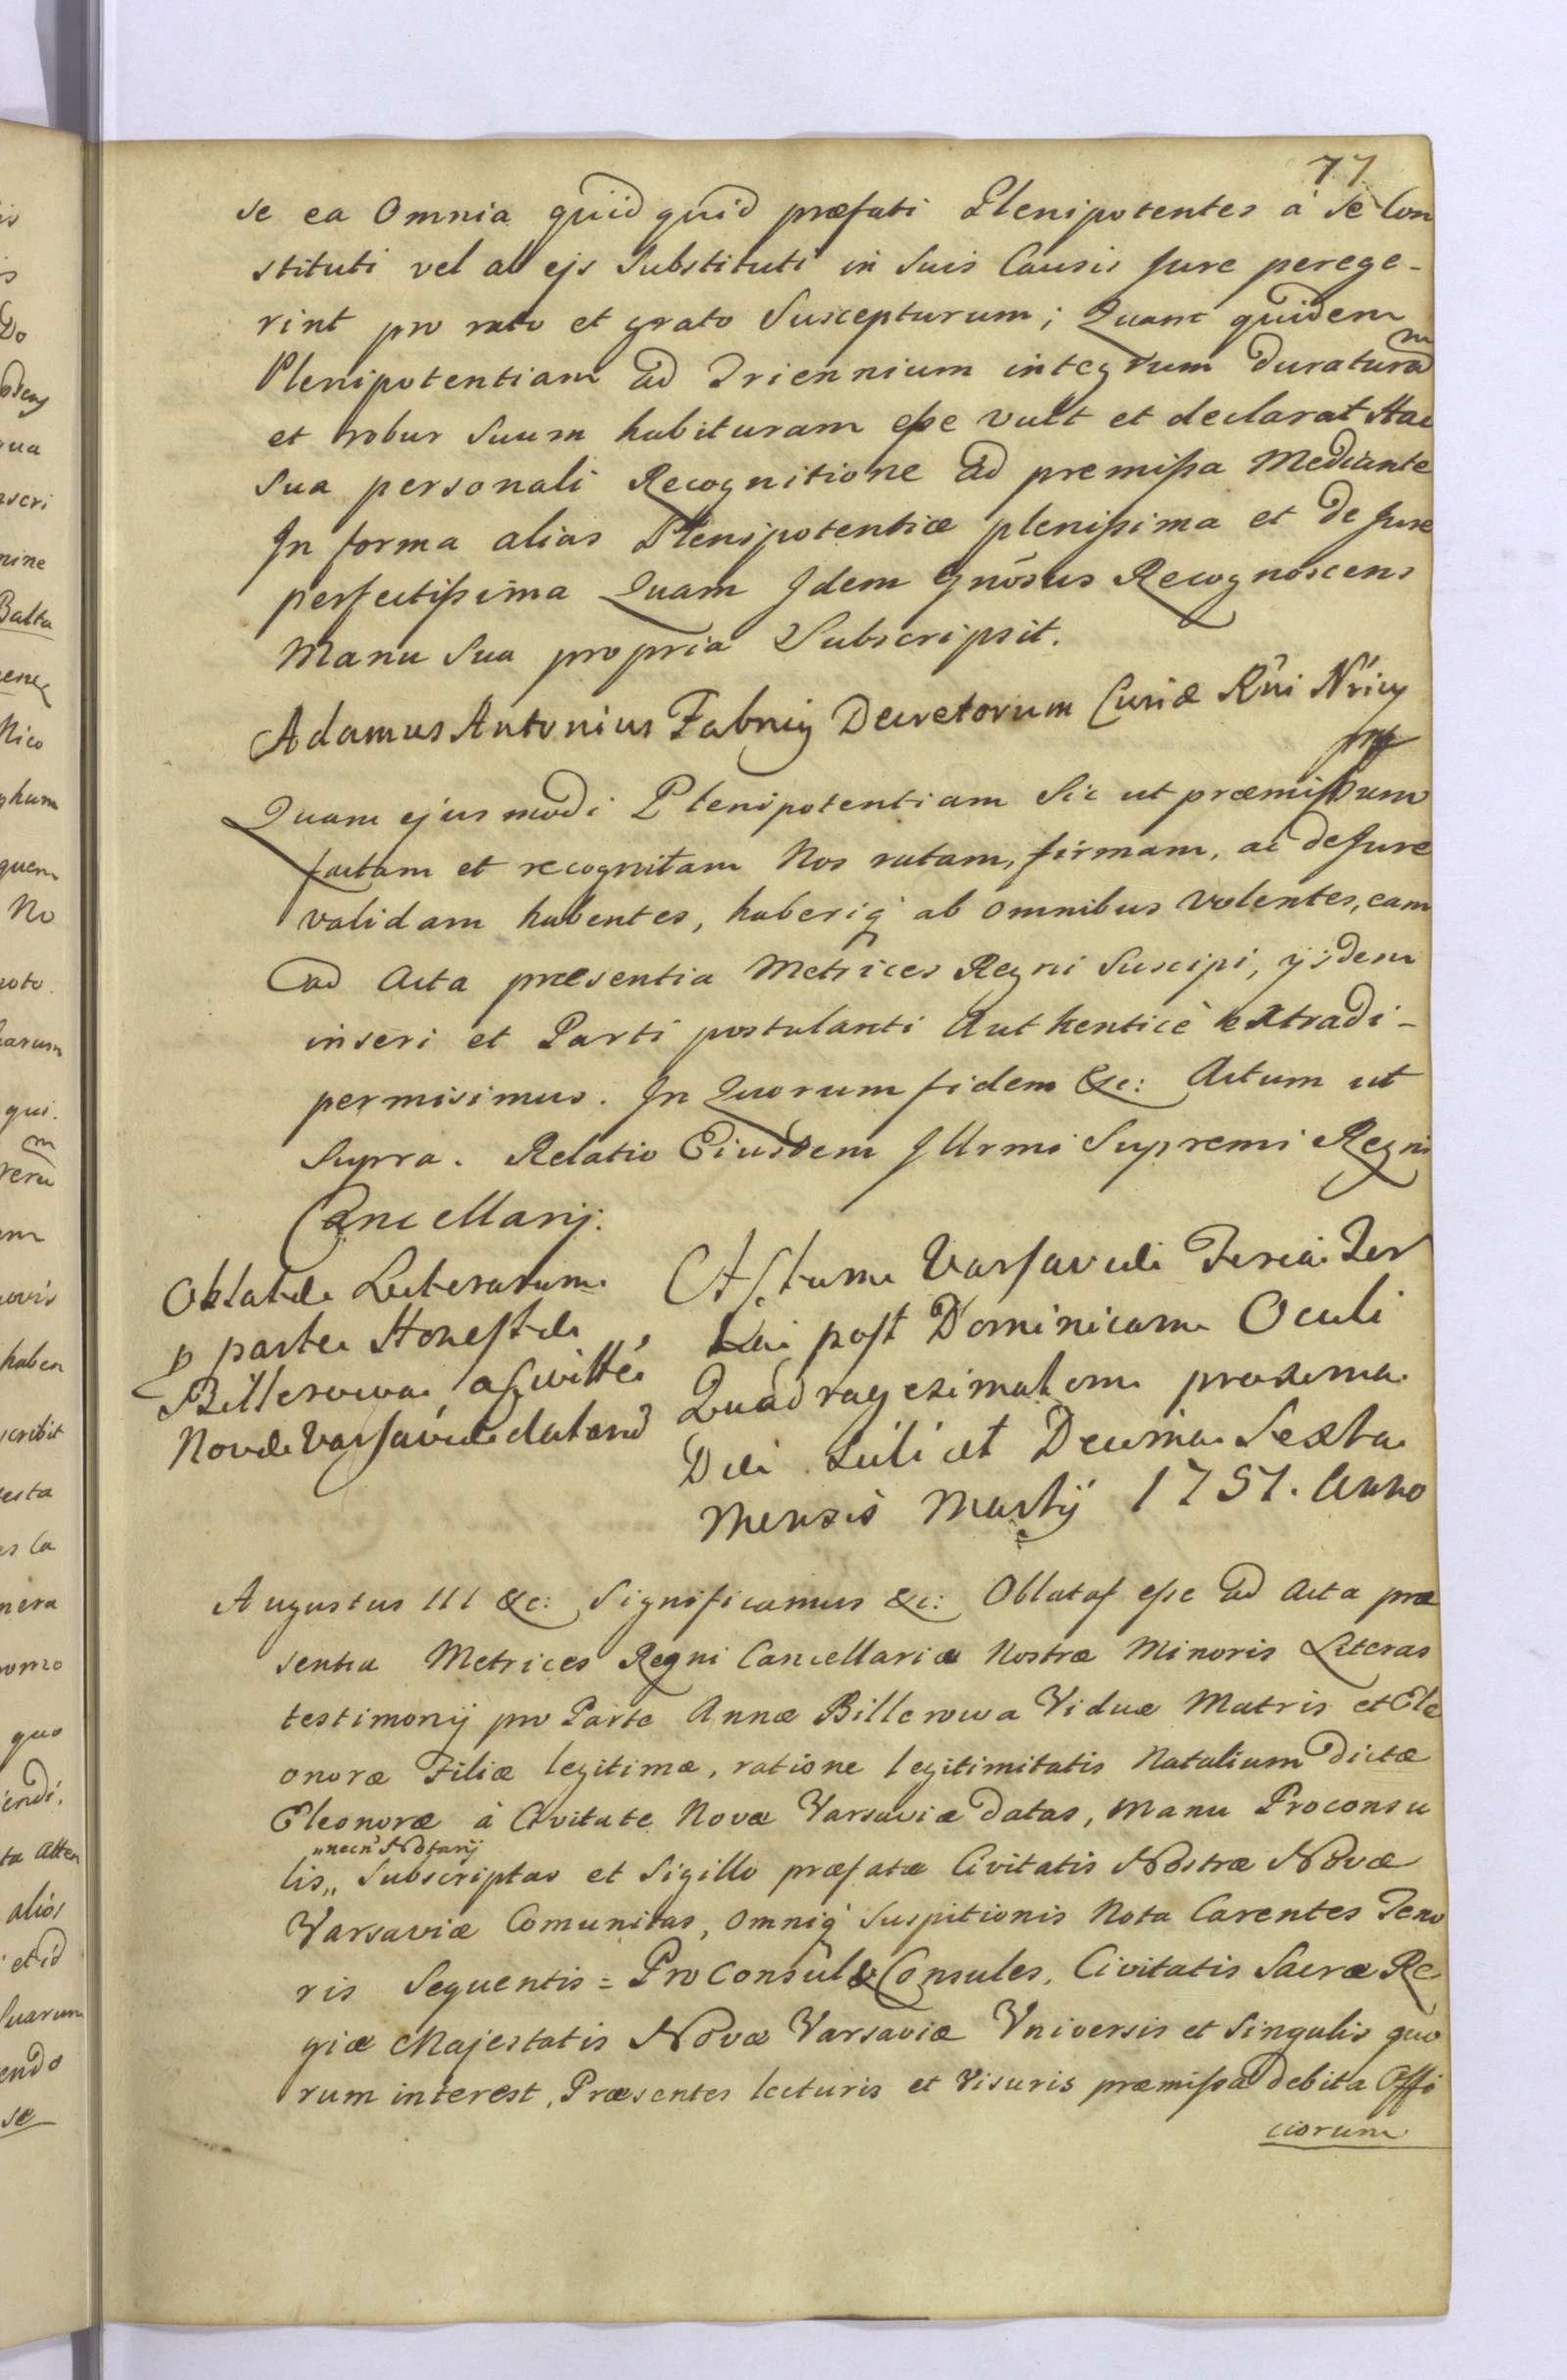 77
se ea Omnia quidquid præfati Plenipotentes à se Con
stituti vel ab ejs Substituti in Suis Causis Jure perege-
rint pro rato et grato Suscepturum; Quam quidem
Plenipotentiam ad Triennium integrum duraturam
et robur Suum habituram eſse vult et declarat Hac
Sua personali Recognitione ad premiſsa Mediante
In forma alias Plenipotentiæ pleniſsima et de Jure
perfectiſsima Quam Idem Gnosus Recognoscens
Manu Sua propria Subscripsit.
Adamus Antonius Decretorum Curiæ
mp
Quam ejusmodi Plenipotentiam Sic ut præmiſsum
factam et recognitam Nos ratam, firmam, ac de Jure
validam habentes, haberiq ab omnibus volentes, eam
ad Acta præsentia Metrices Regni Suscipi, ijsdem
inseri et Parti postulanti Authenticè extradi-
permisimus. In Quorum fidem &c: Actum ut
Supra. Relatio Eiusdem Illrmi Supremi Regni
Cancellarij.
Oblatæ Literarum
p parte Honestæ
Billerowa, a Civitte
Novæ Varsaviæ datarũ
Actum Varsaviæ Feria Ter
tia post Dominicam Oculi
Quadragesimalem proxima
Die scilicet Decima Sexta
Mensis Martij 1751. Anno
Augustus III &c: Significamus &c: Oblatas eſse ad Acta præ
sentia Metrices Regni Cancellariæ Nostræ Minoris Literas
testimonij pro Parte Annæ Billerowa Viduæ Matris et Ele
onoræ Filiæ legitimæ, ratione legitimitatis Natalium dictæ
Eleonoræ à Civitate Novæ Varsaviæ datas, Manu Proconsu
„necn Notarij
lis „ Subscriptas et Sigillo præfatæ Civitatis Nostræ Novæ
Varsaviæ Comunitas, omniq Suspitionis Nota Carentes Teno
ris Sequentis = ProConsul & Consules, Civitatis Sacræ Re
giæ Majestatis Novæ Varsaviæ Vniversis et Singulis quo
rum interest, Præsentes lecturis et Visuris præmiſsa debita Offi
ciorum